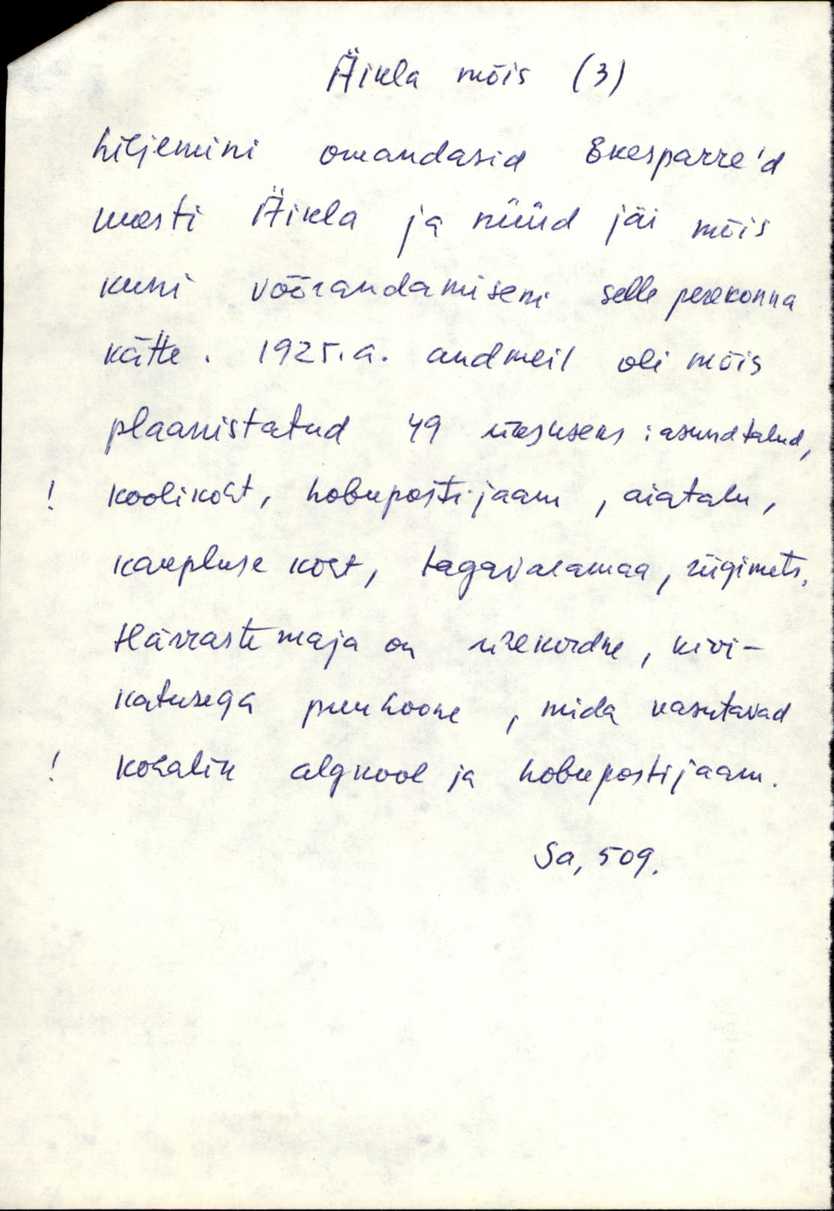 Äikla mõis (3)
hiljemini omandasid Ekesparre'd
uuesti Äikla ja nüüd jäi mõis
kuni võõrandamiseni selle perekonna
kätte. 1925.a. andmeil oli mõis
plaanistatud 49 üksuseks: asundtalud,
! koolikoht, hobupostijaam, aiatalu,
kaupluse koht, tagavaramaa, riigimets.
Härrastemaja on ühekordne, kivi-
katusega puuhoone, mida kasutavad
! kohalik algkool ja hobupostijaam.
Sa, 509.